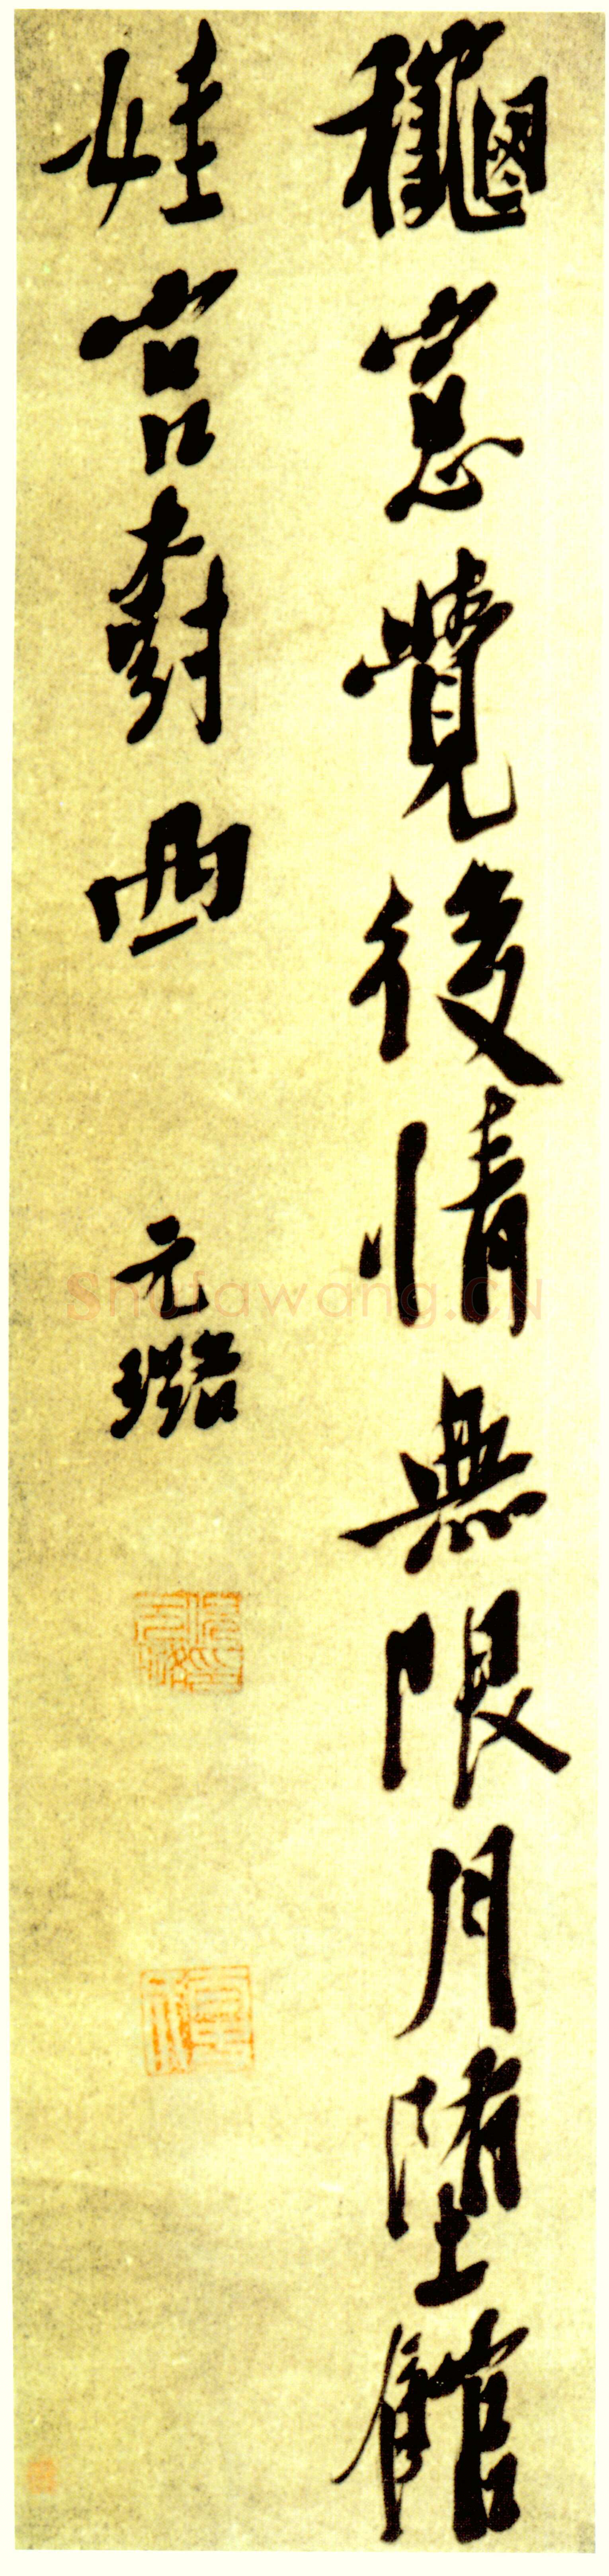 龝窓覺後情無限月堕館
娃宮樹西
元璐
Shufawang.CN